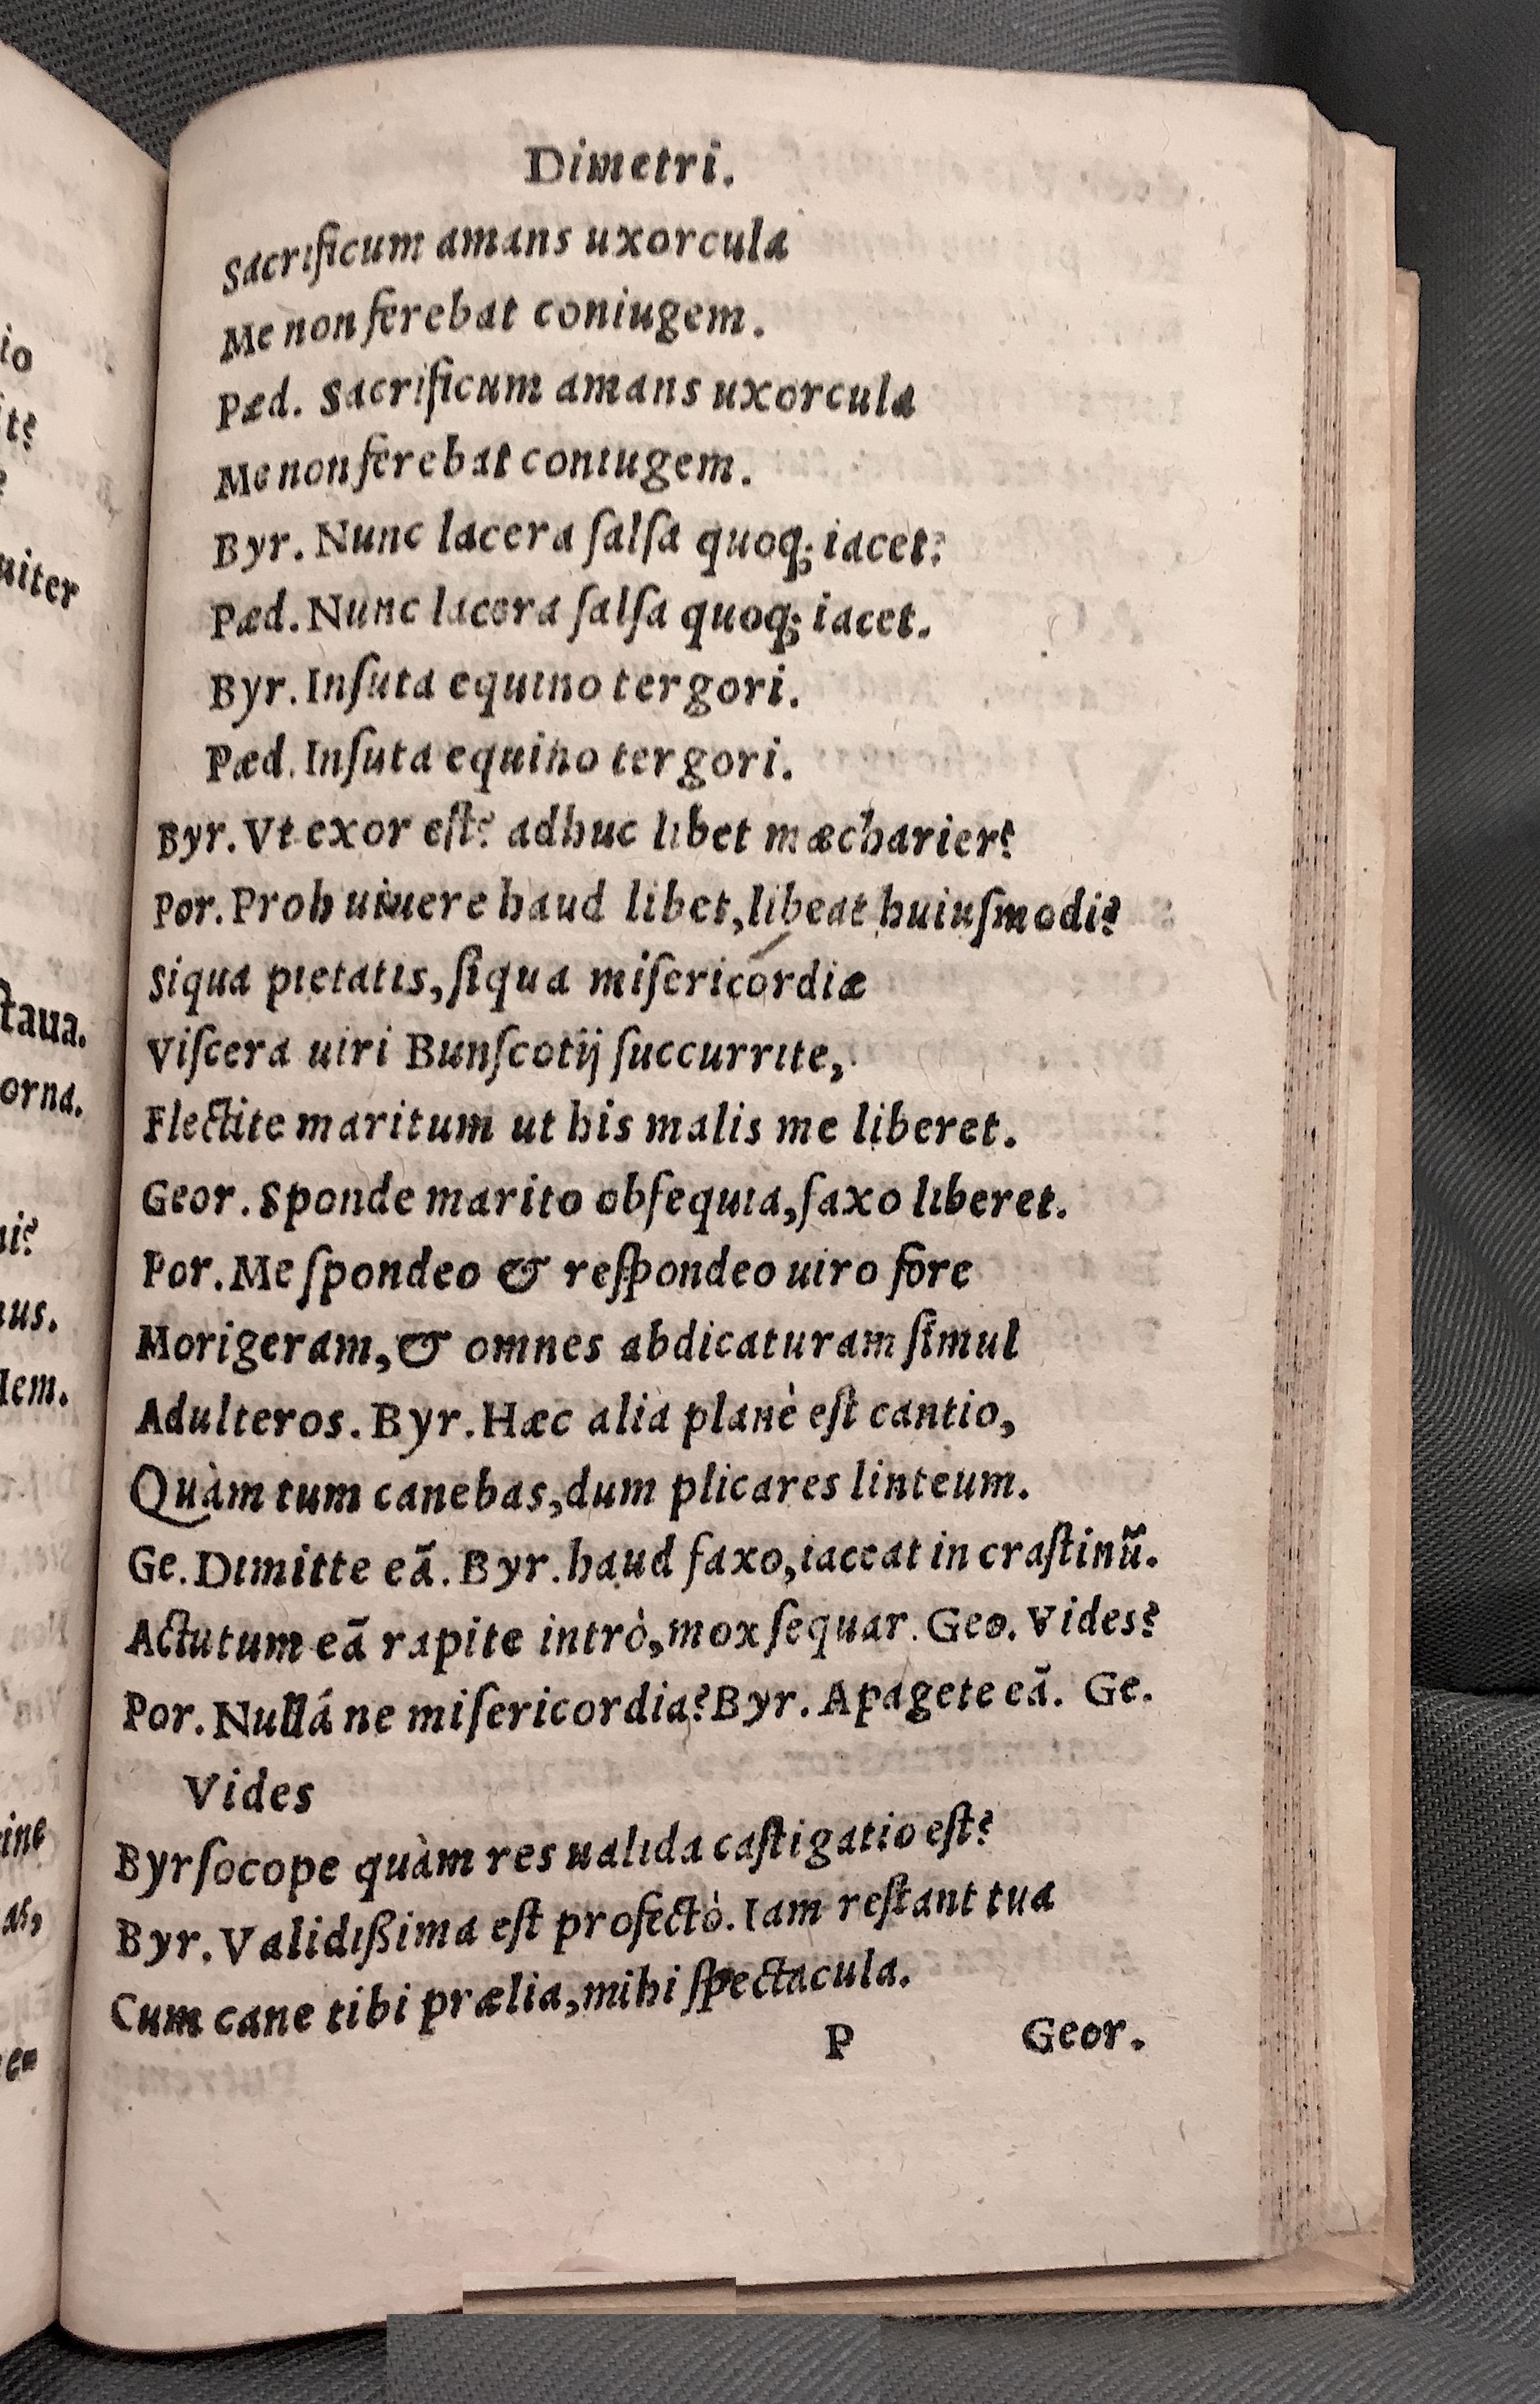 Dimetri.
Sacrificum amans uxorcula
Me non ferebat coniugem.
Pæd. Sacrificum amans uxorcula
Me non ferebat coniugem.
Byr. Nunc lacera ſalſa quoq; iacet?
Pæd. Nunc lacera ſalſa quoq; iacet.
Byr. Inſuta equino tergori.
Pæd. Inſuta equino tergori.
Byr. Vt exor eſt? adhuc libet mæcharier?
Por. Proh uiuere haud libet, libeat huiuſmodi?
Siqua pietatis, ſiqua miſericordiæ
Viſcera uiri Bunſcotij ſuccurrite,
Flectite maritum ut his malis me liberet.
Geor. Sponde marito obſequia, faxo liberet.
Por. Me ſpondeo & reſpondeo uiro fore
Morigeram, & omnes abdicaturam ſimul
Adulteros. Byr. Hæc alia planè eſt cantio,
Quàm tum canebas, dum plicares linteum.
Ge. Dimitte eā. Byr. haud faxo, iaceat in craſtinū.
Actutum eā rapite intrò, mox ſequar. Geo. Vides?
Por. Nullá ne miſericordia? Byr. Apagete eā. Ge.
Vides
Byrſocope quàm res ualida caſtigatio eſt?
Byr. Validißima eſt profectò. Iam reſtant tua
Cum cane tibi prælia, mihi ſpectacula.
P Geor.